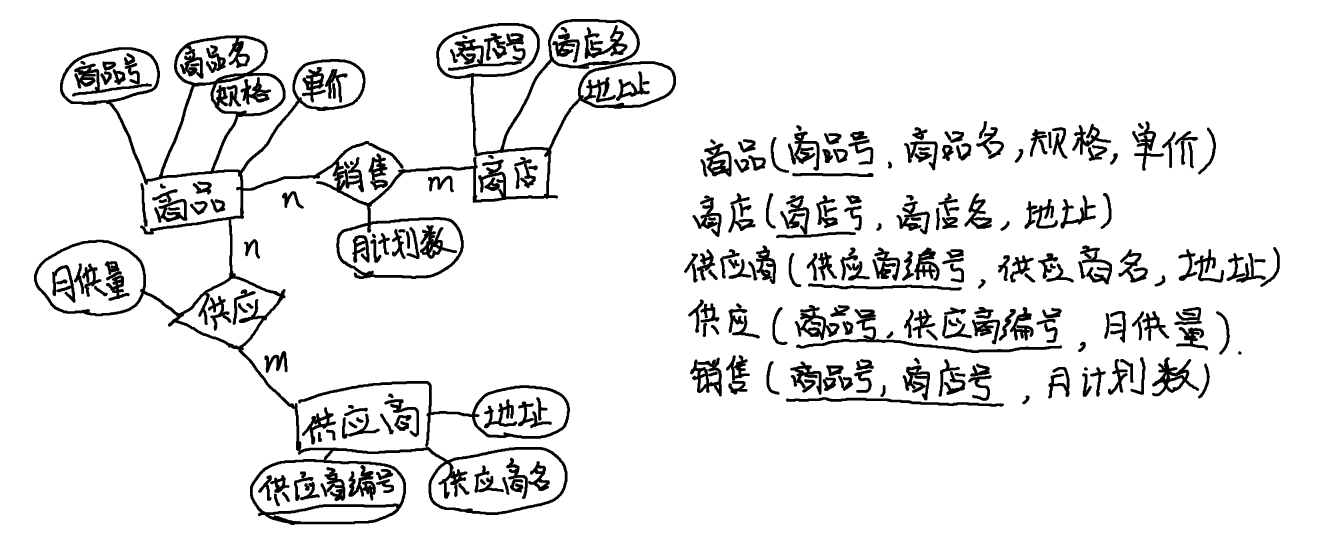 商品号
商品名
规格
单价
商店号
商店名
地址
商品
n
销售
m
商店
月计划数
n
月供量
供应
m
供应商
地址
供应商编号
供应商名
商品(商品号,商品名,规格,单价)
商店(商店号,商店名,地址)
供应商(供应商编号,供应商名,地址)
供应(商品号,供应商编号,月供量).
销售(商品号,商店号,月计划数)